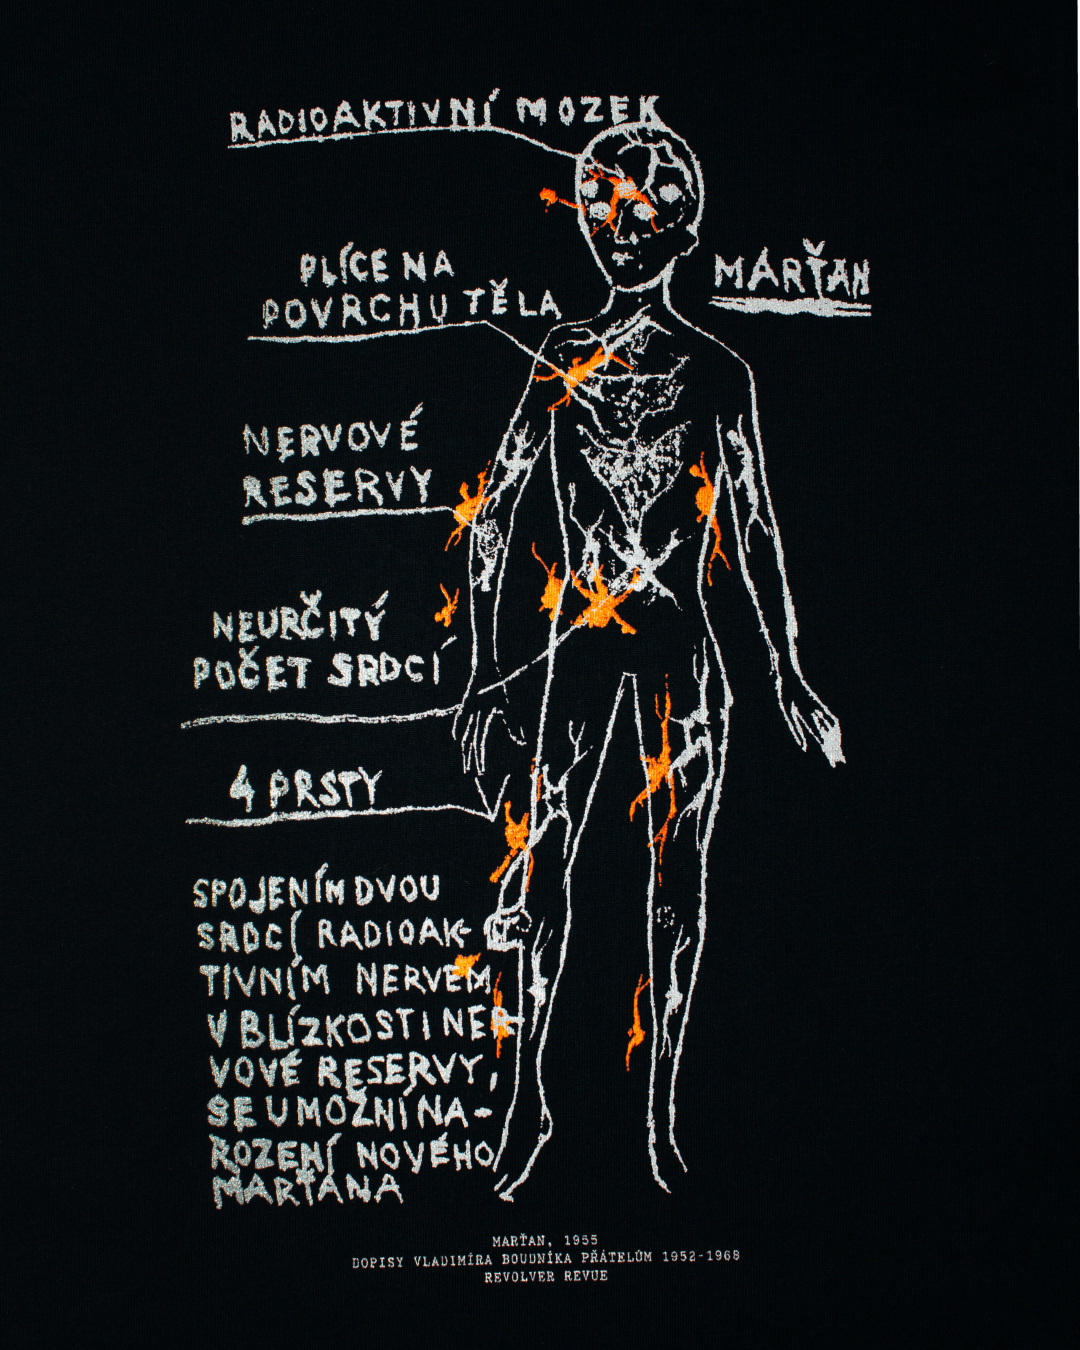 RADIOAKTIVNÍ MOZEK
PLÍCE NA
POVRCHU TĚLA
MARŤAN
NERVOVÉ
RESERVY
NEURČITÝ
POČET SRDCÍ
4 PRSTY
SPOJENÍM DVOU
SRDCÍ RADIOAK-
TIVNÍM NERVEM
V BLÍZKOSTI NER
VOVÉ RESERVY,
SE UMOŽNÍ NA-
ROZENÍ NOVÉHO
MARŤANA
MARŤAN, 1955
DOPISY VLADIMÍRA BOUDNÍKA PŘÁTELŮM 1952-1968
REVOLVER REVUE